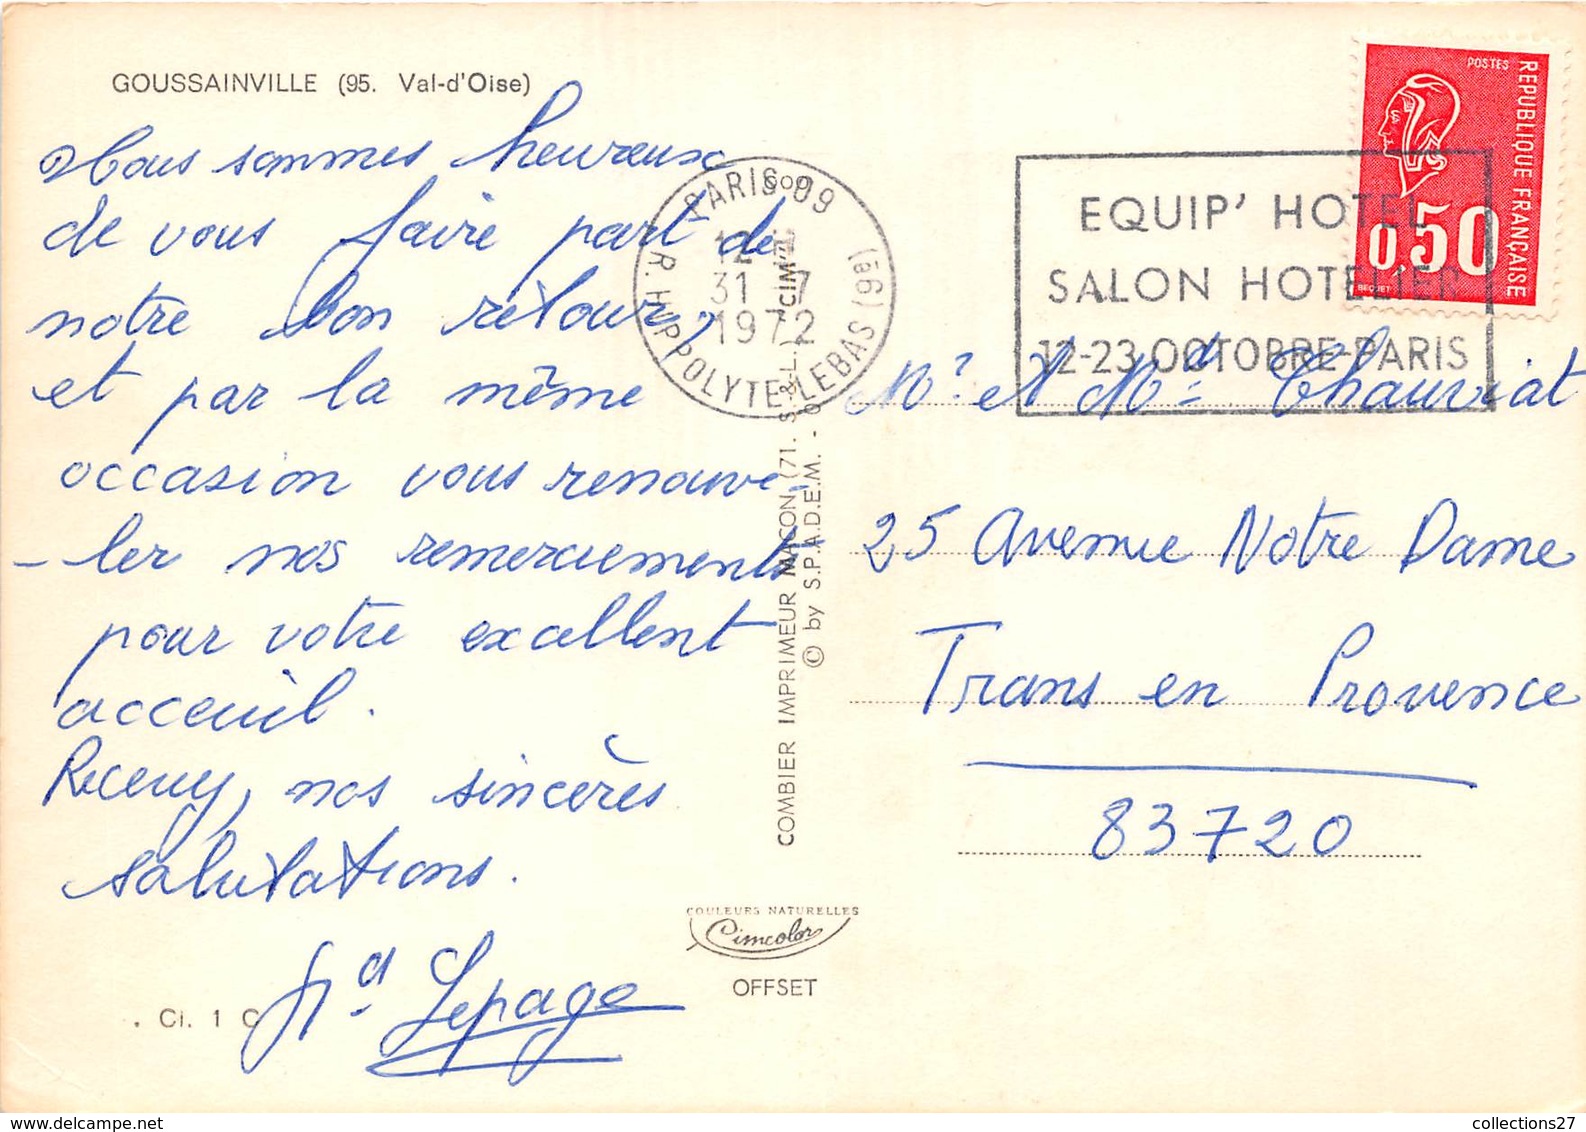 GOUSSAINVILLE (95. Val-d'Oise)
Nous sommes heureux
de vous faire part de
notre bon retour,
et par la même
occasion vous renouve-
-ler nos remerciements
pour votre excellent
acceuil.
Recevez, nos sincères
salutations.
Md Lepage
. Ci. 1 C
PARIS 09
31 7
1972
R. HIPPOLYTE LEBAS (9e)
COMBIER IMPRIMEUR MACON (71. S.&L.) "CIM"
© by S.P.A.D.E.M. -
COULEURS NATURELLES
Cimcolor
OFFSET
EQUIP' HOTEL
SALON HOTELIER
12-23 OCTOBRE-PARIS
POSTES
REPUBLIQUE FRANÇAISE
0,50
BEQUET
Mr et Md Chauviat
25 Avenue Notre Dame
Trans en Provence
83720
collections27